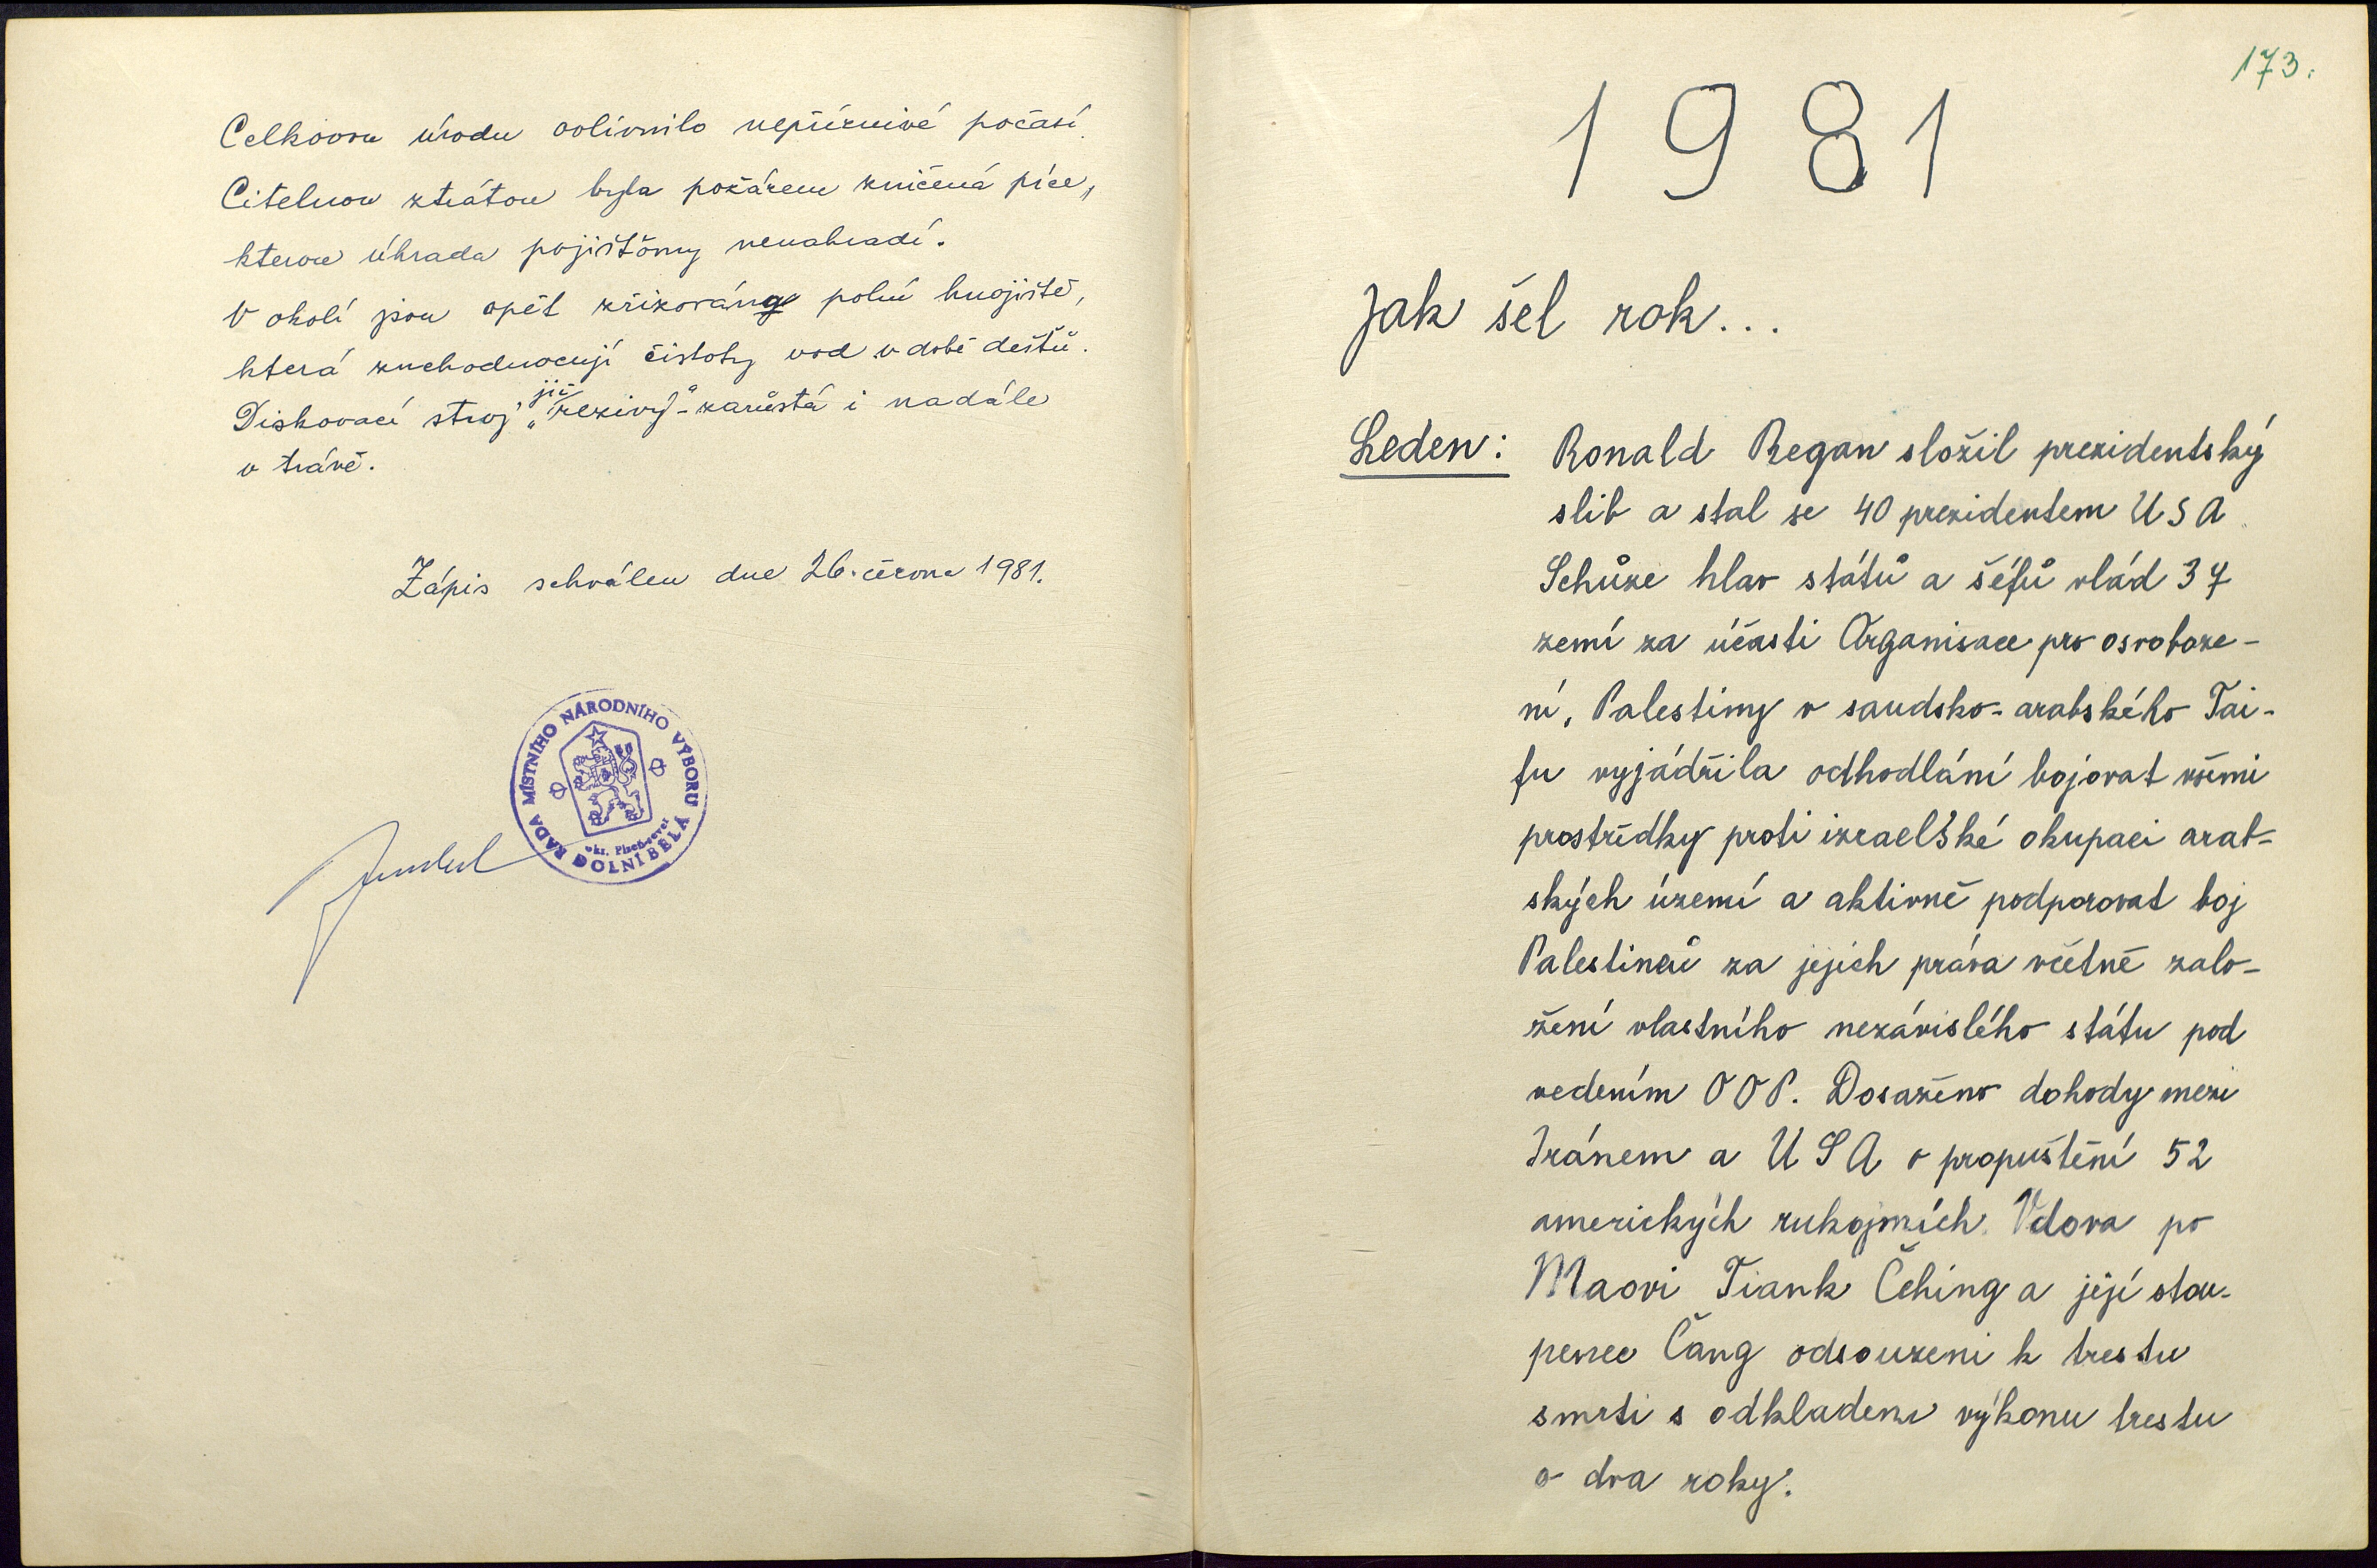 Celkovou úrodu ovlivnilo nepříznivé počasí.
Citelnou ztrátou byla požárem zničená píce,
kterou úhrada pojišťovny nenahradí.
V okolí jsou opět zřizovány polní hnojiště,
která znehodnocují čistoty vod v době dešťů.
Diskovací stroj „již rezivý" zarůstá i nadále
v trávě.
Zápis schválen dne 26. června 1981.
RADA MÍSTNÍHO NÁRODNÍHO VÝBORU
okr. Plzeň-sever
DOLNÍ BĚLÁ
173.
1981
Jak šel rok...
Leden: Ronald Regan složil prezidentský
slib a stal se 40 prezidentem USA
Schůze hlav států a šéfů vlád 37
zemí za účasti Organisace pro osvoboze-
ní, Palestiny v saudsko-arabského Tai-
fu vyjádřila odhodlání bojovat všemi
prostřědky proti izraelské okupaci arab-
ských území a aktivně podporovat boj
Palestinců za jejich práva včetně zalo-
žení vlastního nezávislého státu pod
vedením OOP. Dosaženo dohody mezi
Iránem a USA o propuštění 52
amerických rukojmích. Vdova po
Maovi Tiank Čching a její stou-
penec Čang odsouzeni k trestu
smrti s odkladem výkonu trestu
o dva roky.